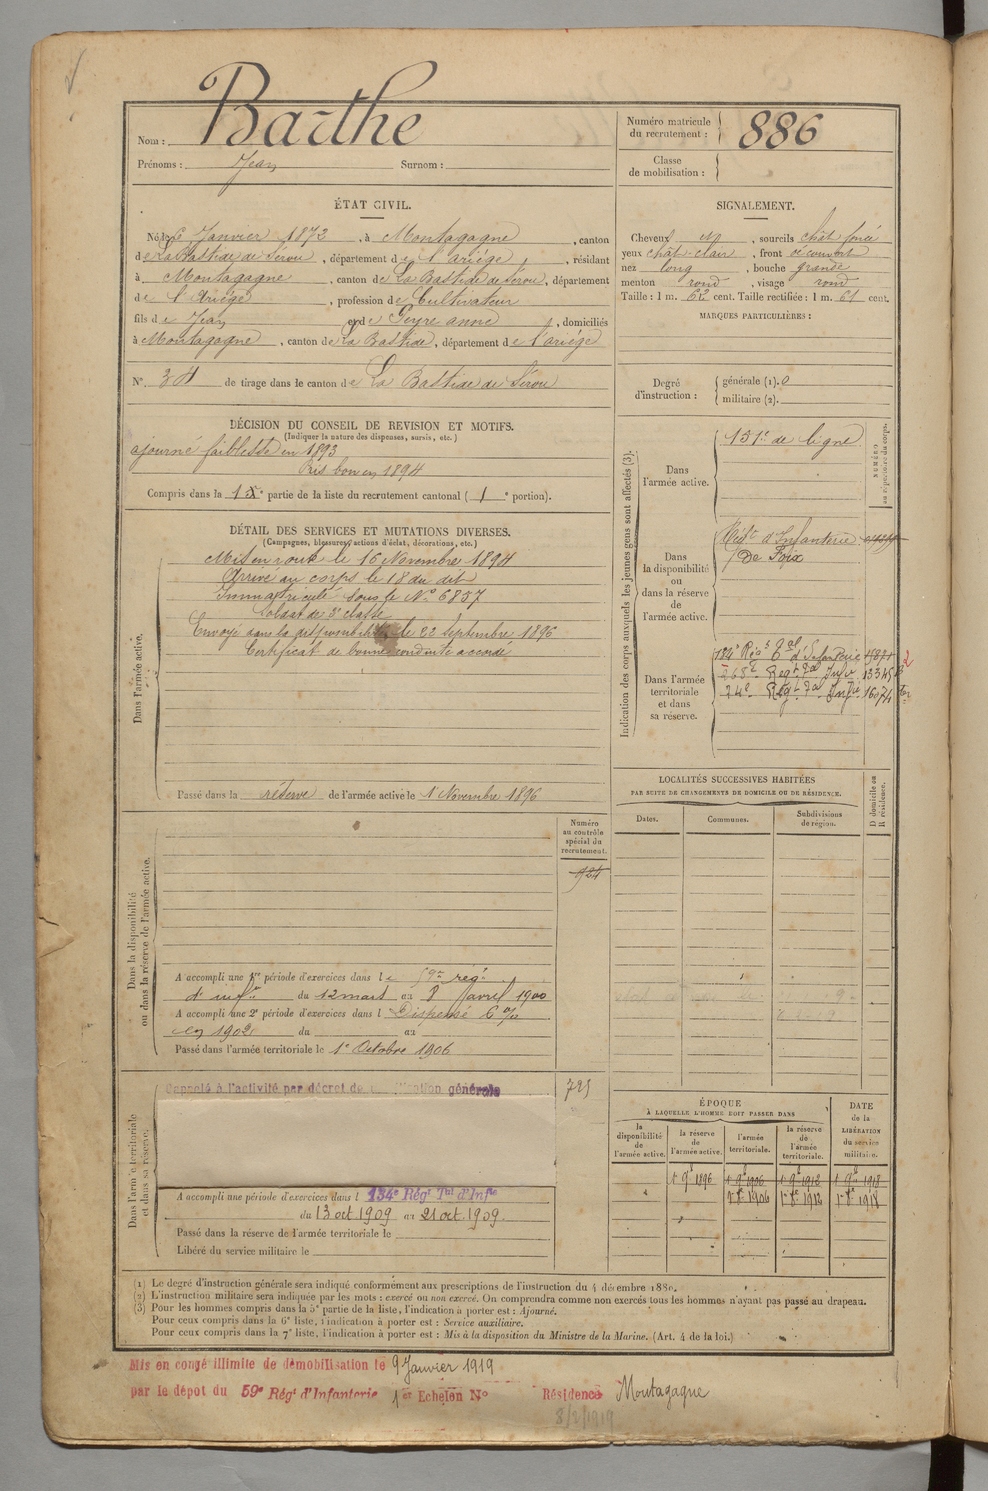 Nom : Barthe
Prénoms : Jean Surnom :
Numéro matricule du recrutement : 886
Classe de mobilisation :
ÉTAT CIVIL.
Né le 6 Janvier 1872, à Montagagne, canton
de La Bastide de Sérou, département de l'Ariége, résidant
à Montagagne, canton de La Bastide de Sérou, département
de l'Ariége, profession de Cultivateur
fils de Jean et de Peyre anne, domiciliés
à Montagagne, canton de La Bastide, département de l'ariége
N° 34 de tirage dans le canton de La Bastide de Sérou
SIGNALEMENT.
Cheveux , sourcils chât foncé
yeux chât clair, front découvert
nez long, bouche grande
menton rond, visage rond
Taille : 1 m. 62 cent. Taille rectifiée : 1 m. 61 cent.
MARQUES PARTICULIÈRES :
Degré d'instruction : générale (1). 0
militaire (2).
DÉCISION DU CONSEIL DE REVISION ET MOTIFS.
(Indiquer la nature des dispenses, sursis, etc.)
ajourné faiblesse en 1893
Pris bon en 1894
Compris dans la 1re partie de la liste du recrutement cantonal (1e portion).
DÉTAIL DES SERVICES ET MUTATIONS DIVERSES.
(Campagnes, blessures, actions d'éclat, décorations, etc.)
Dans l'armée active.
Mis en route le 16 Novembre 1894
Arrivé au corps le 18 du dit
Immatriculé sous le N° 6857
Soldat de 2e classe
Envoyé dans la disponibilité le 22 Septembre 1896
Certificat de bonne conduite accordé
Passé dans la réserve de l'armée active le 1 Novembre 1896
Indication des corps auxquels les jeunes gens sont affectés (3).
NUMÉRO au répertoire du corps.
Dans l'armée active.
151e de ligne
Dans la disponibilité ou dans la réserve de l'armée active.
Régt d'Infanterie
De Foix
Dans l'armée territoriale et dans sa réserve.
134e Régt Tal d'Infanterie
Regt Tal Infie 13345
Régt Tal Infie 16074
LOCALITÉS SUCCESSIVES HABITÉES
PAR SUITE DE CHANGEMENTS DE DOMICILE OU DE RÉSIDENCE.
Dates. Communes. Subdivisions de région. D domicile ou R résidence.
Dans la disponibilité ou dans la réserve de l'armée active.
Numéro au contrôle spécial du recrutement.
924
A accompli une 1re période d'exercices dans le 59e regt
d'infie du 12 mars au 8 avril 1900
A accompli une 2e période d'exercices dans l Dispensé 6 %
en 1902 du au
Passé dans l'armée territoriale le 1er Octobre 1906
Dans l'armée territoriale et dans sa réserve.
Rappelé à l'activité par décret de mobilisation générale
725
A accompli une période d'exercices dans l 134e Régt Tal d'Infie
du 13 oct 1909 au 21 oct. 1909.
Passé dans la réserve de l'armée territoriale le
Libéré du service militaire le
ÉPOQUE
À LAQUELLE L'HOMME DOIT PASSER DANS
la disponibilité de l'armée active. la réserve de l'armée active. l'armée territoriale. la réserve de l'armée territoriale.
DATE de la LIBÉRATION du service militaire.
1 9e 1896 1 9e 1906 1 9e 1912 1 9e 1918
1er 8e 1906 1er 8e 1912 1er 8e 1918
(1) Le degré d'instruction générale sera indiqué conformément aux prescriptions de l'instruction du 4 décembre 1889.
(2) L'instruction militaire sera indiquée par les mots : exercé ou non exercé. On comprendra comme non exercés tous les hommes n'ayant pas passé au drapeau.
(3) Pour les hommes compris dans la 5e partie de la liste, l'indication à porter est : Ajourné.
Pour ceux compris dans la 6e liste, l'indication à porter est : Service auxiliaire.
Pour ceux compris dans la 7e liste, l'indication à porter est : Mis à la disposition du Ministre de la Marine. (Art. 4 de la loi.)
Mis en congé illimité de démobilisation le 9 Janvier 1919
par le dépot du 59e Régt d'Infanterie 1er Echelon N° Résidence Montagagne
8/2/1919